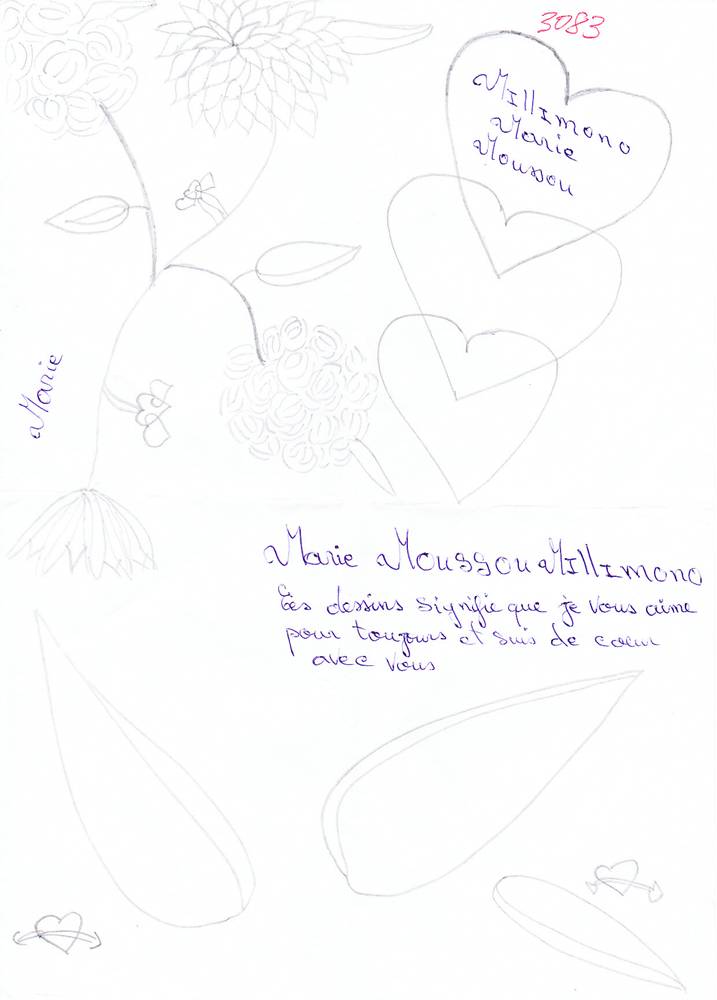 3083
Millimono
Marie
Moussou
Marie
Marie Moussou Millimono
Ces dessins signifie que je vous aime
pour toujours et suis de coeur
avec vous